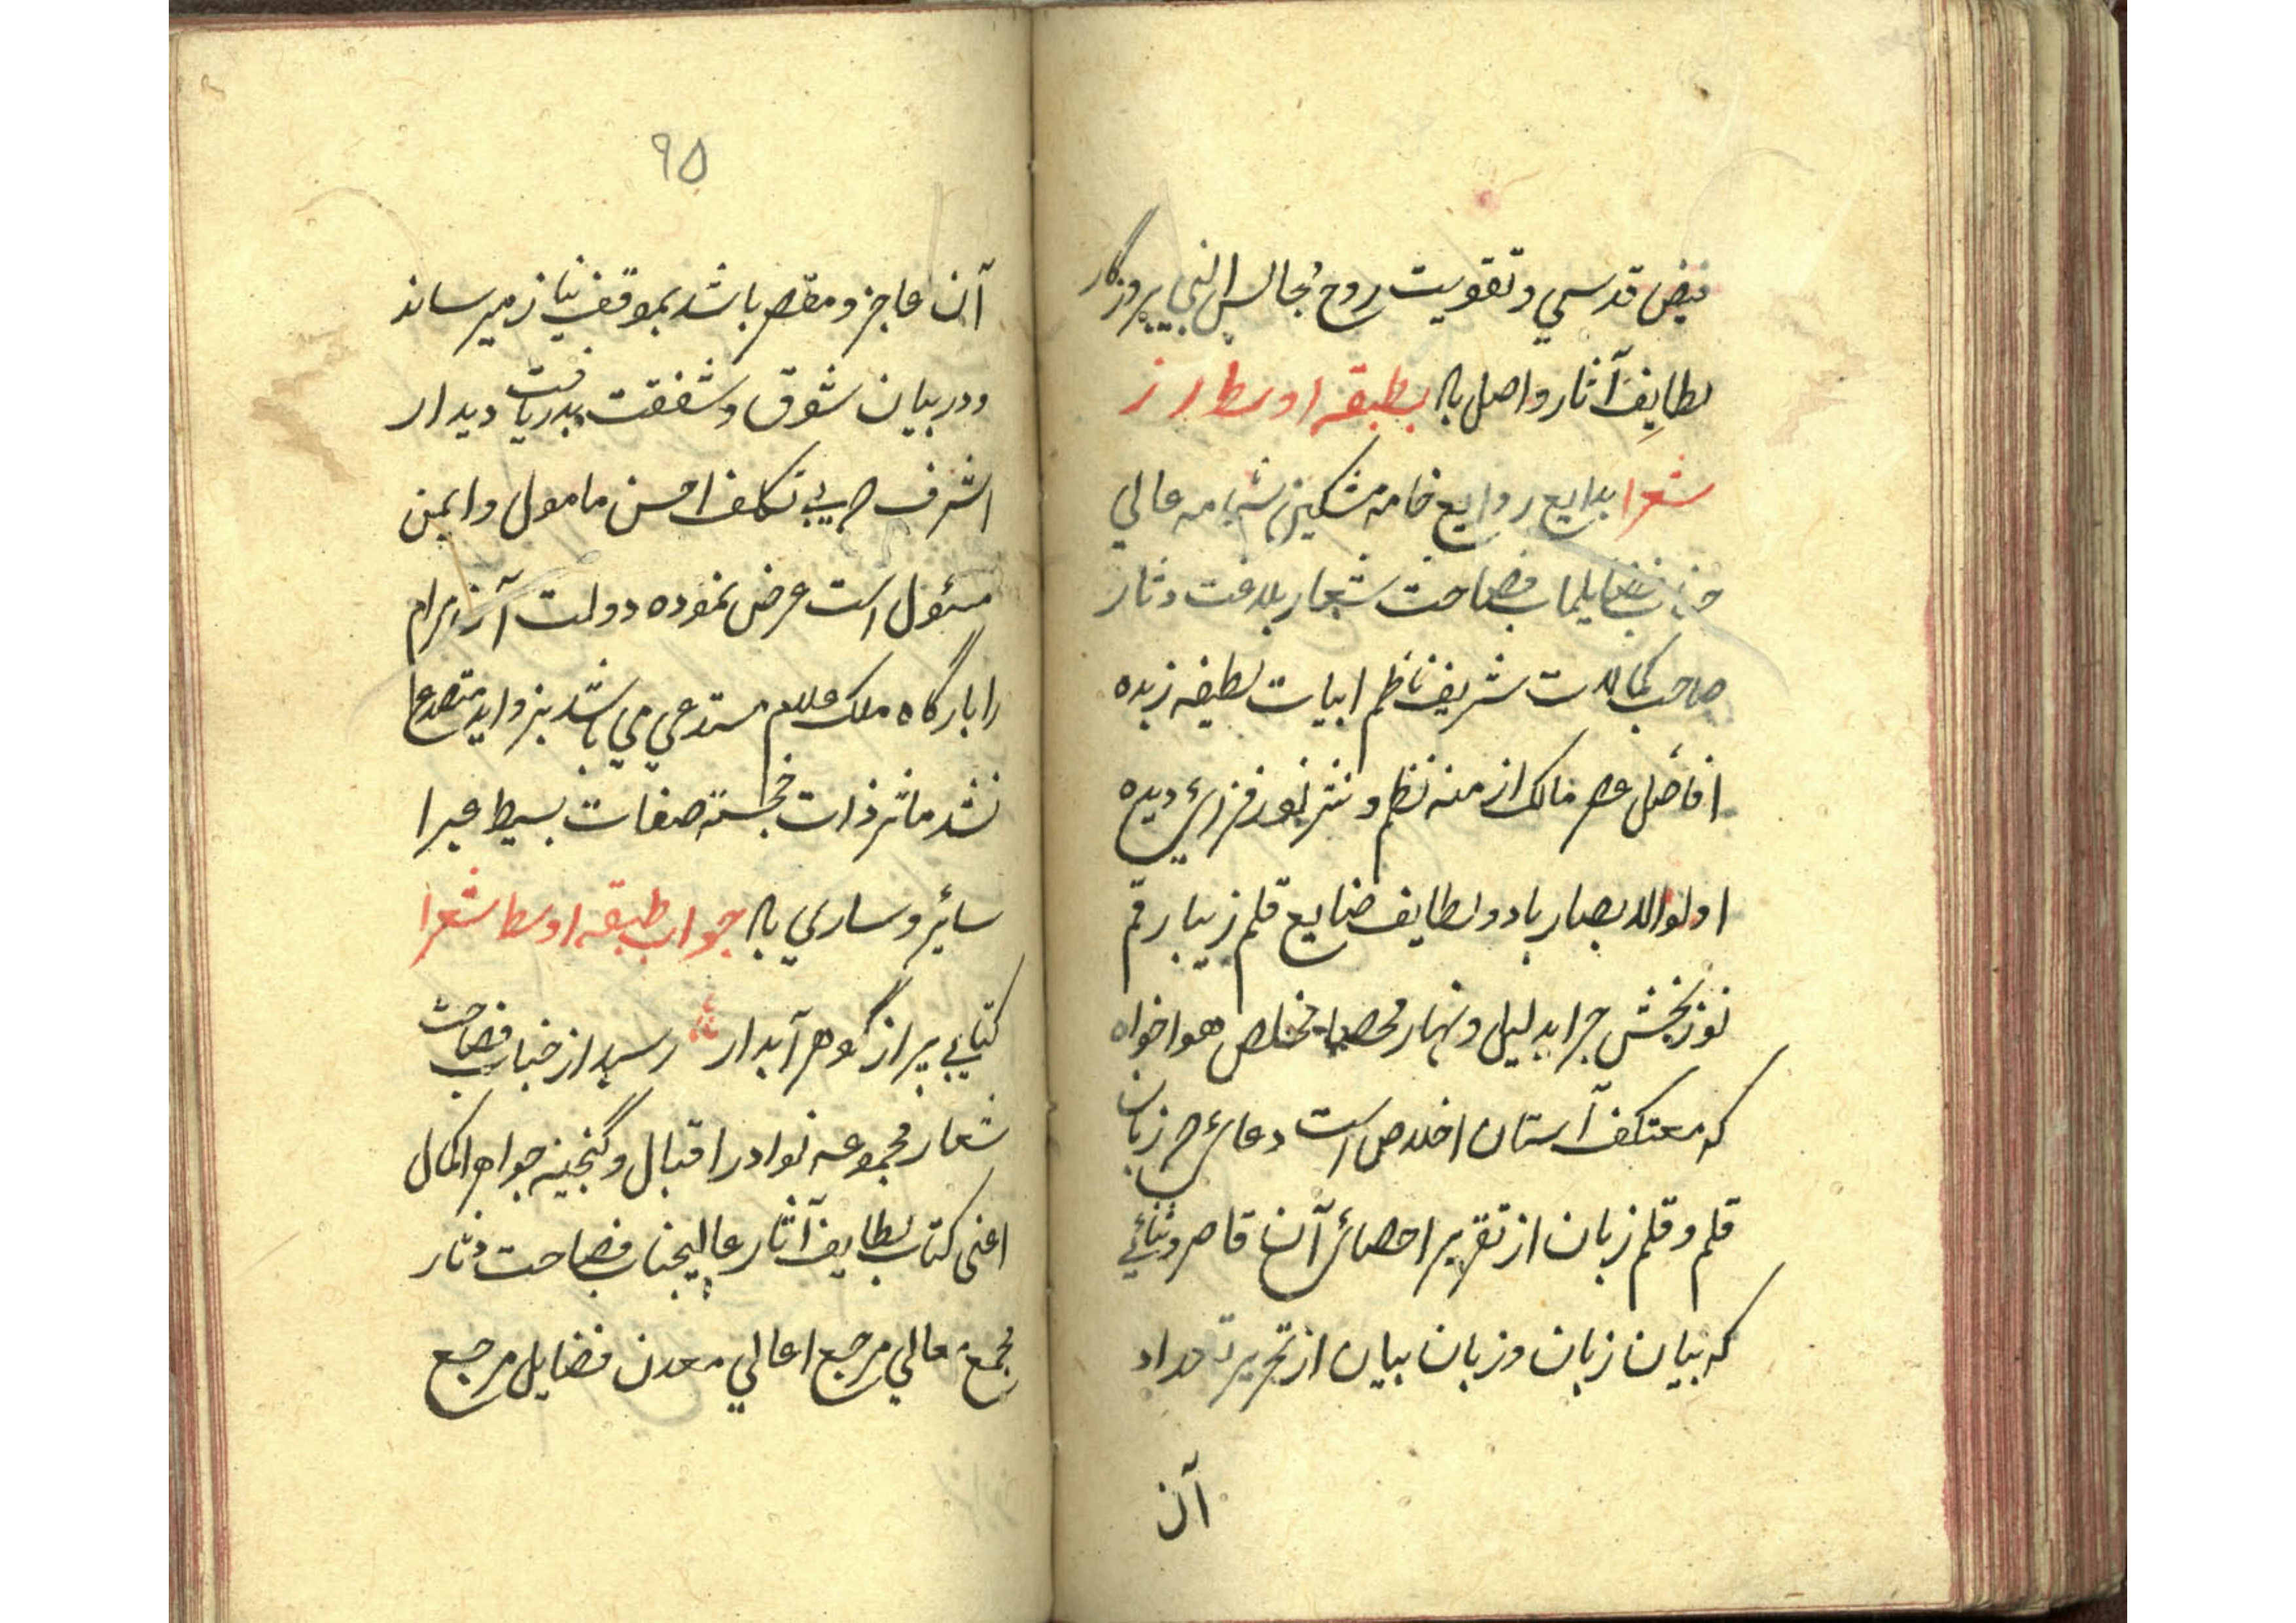 فیض قدسی و تقویت روح مجالس النبی بروزگار
لطایف آثار واصل باد بطبقه اوسط از
شعرا بدایع روایع خامه مشکین شمامه عالی
جناب فضایلماب فصاحت شعار بلاغت دثار
صاحب کمالات شریف ناظم ابیات لطیفه زبده
افاضل عصر مالک ازمنه نظم و نثر نور فزای دیده
اولوالابصار باد و لطایف صنایع قلم زیبا رقم
نور بخش جراید لیل و نهار مخلص هواخواه
که معتکف آستان اخلاص است دعای که زبان
قلم و قلم زبان از تقریر احصای آن قاصر و ثنائی
که بیان زبان و زبان بیان از تحریر تعداد
آن
۹۵
آن عاجز و مقصر باشد بموقف نیاز میرساند
و در بیان شوق و شفقت بدریافت دیدار
اشرف که بی تکلف احسن مامول و ایمن
مسئول است عرض نموده دولت آن مرام
را بارگاه ملک علام مستدعی می باشد بزواید متصدع
نشد ماثر ذات خجسته صفات بسیط غبرا
سائر و ساری باد جواب طبقه اوسط شعرا
کتابی پر از گوهر آبدار رسید از جناب فصاحت
شعار مجموعه نوادر اقبال و گنجینه جواهر اکمال
اعنی کتاب لطایف آثار عالیجناب فصاحت دثار
مجمع معالی مرجع اعالی معدن فضایل مرجع